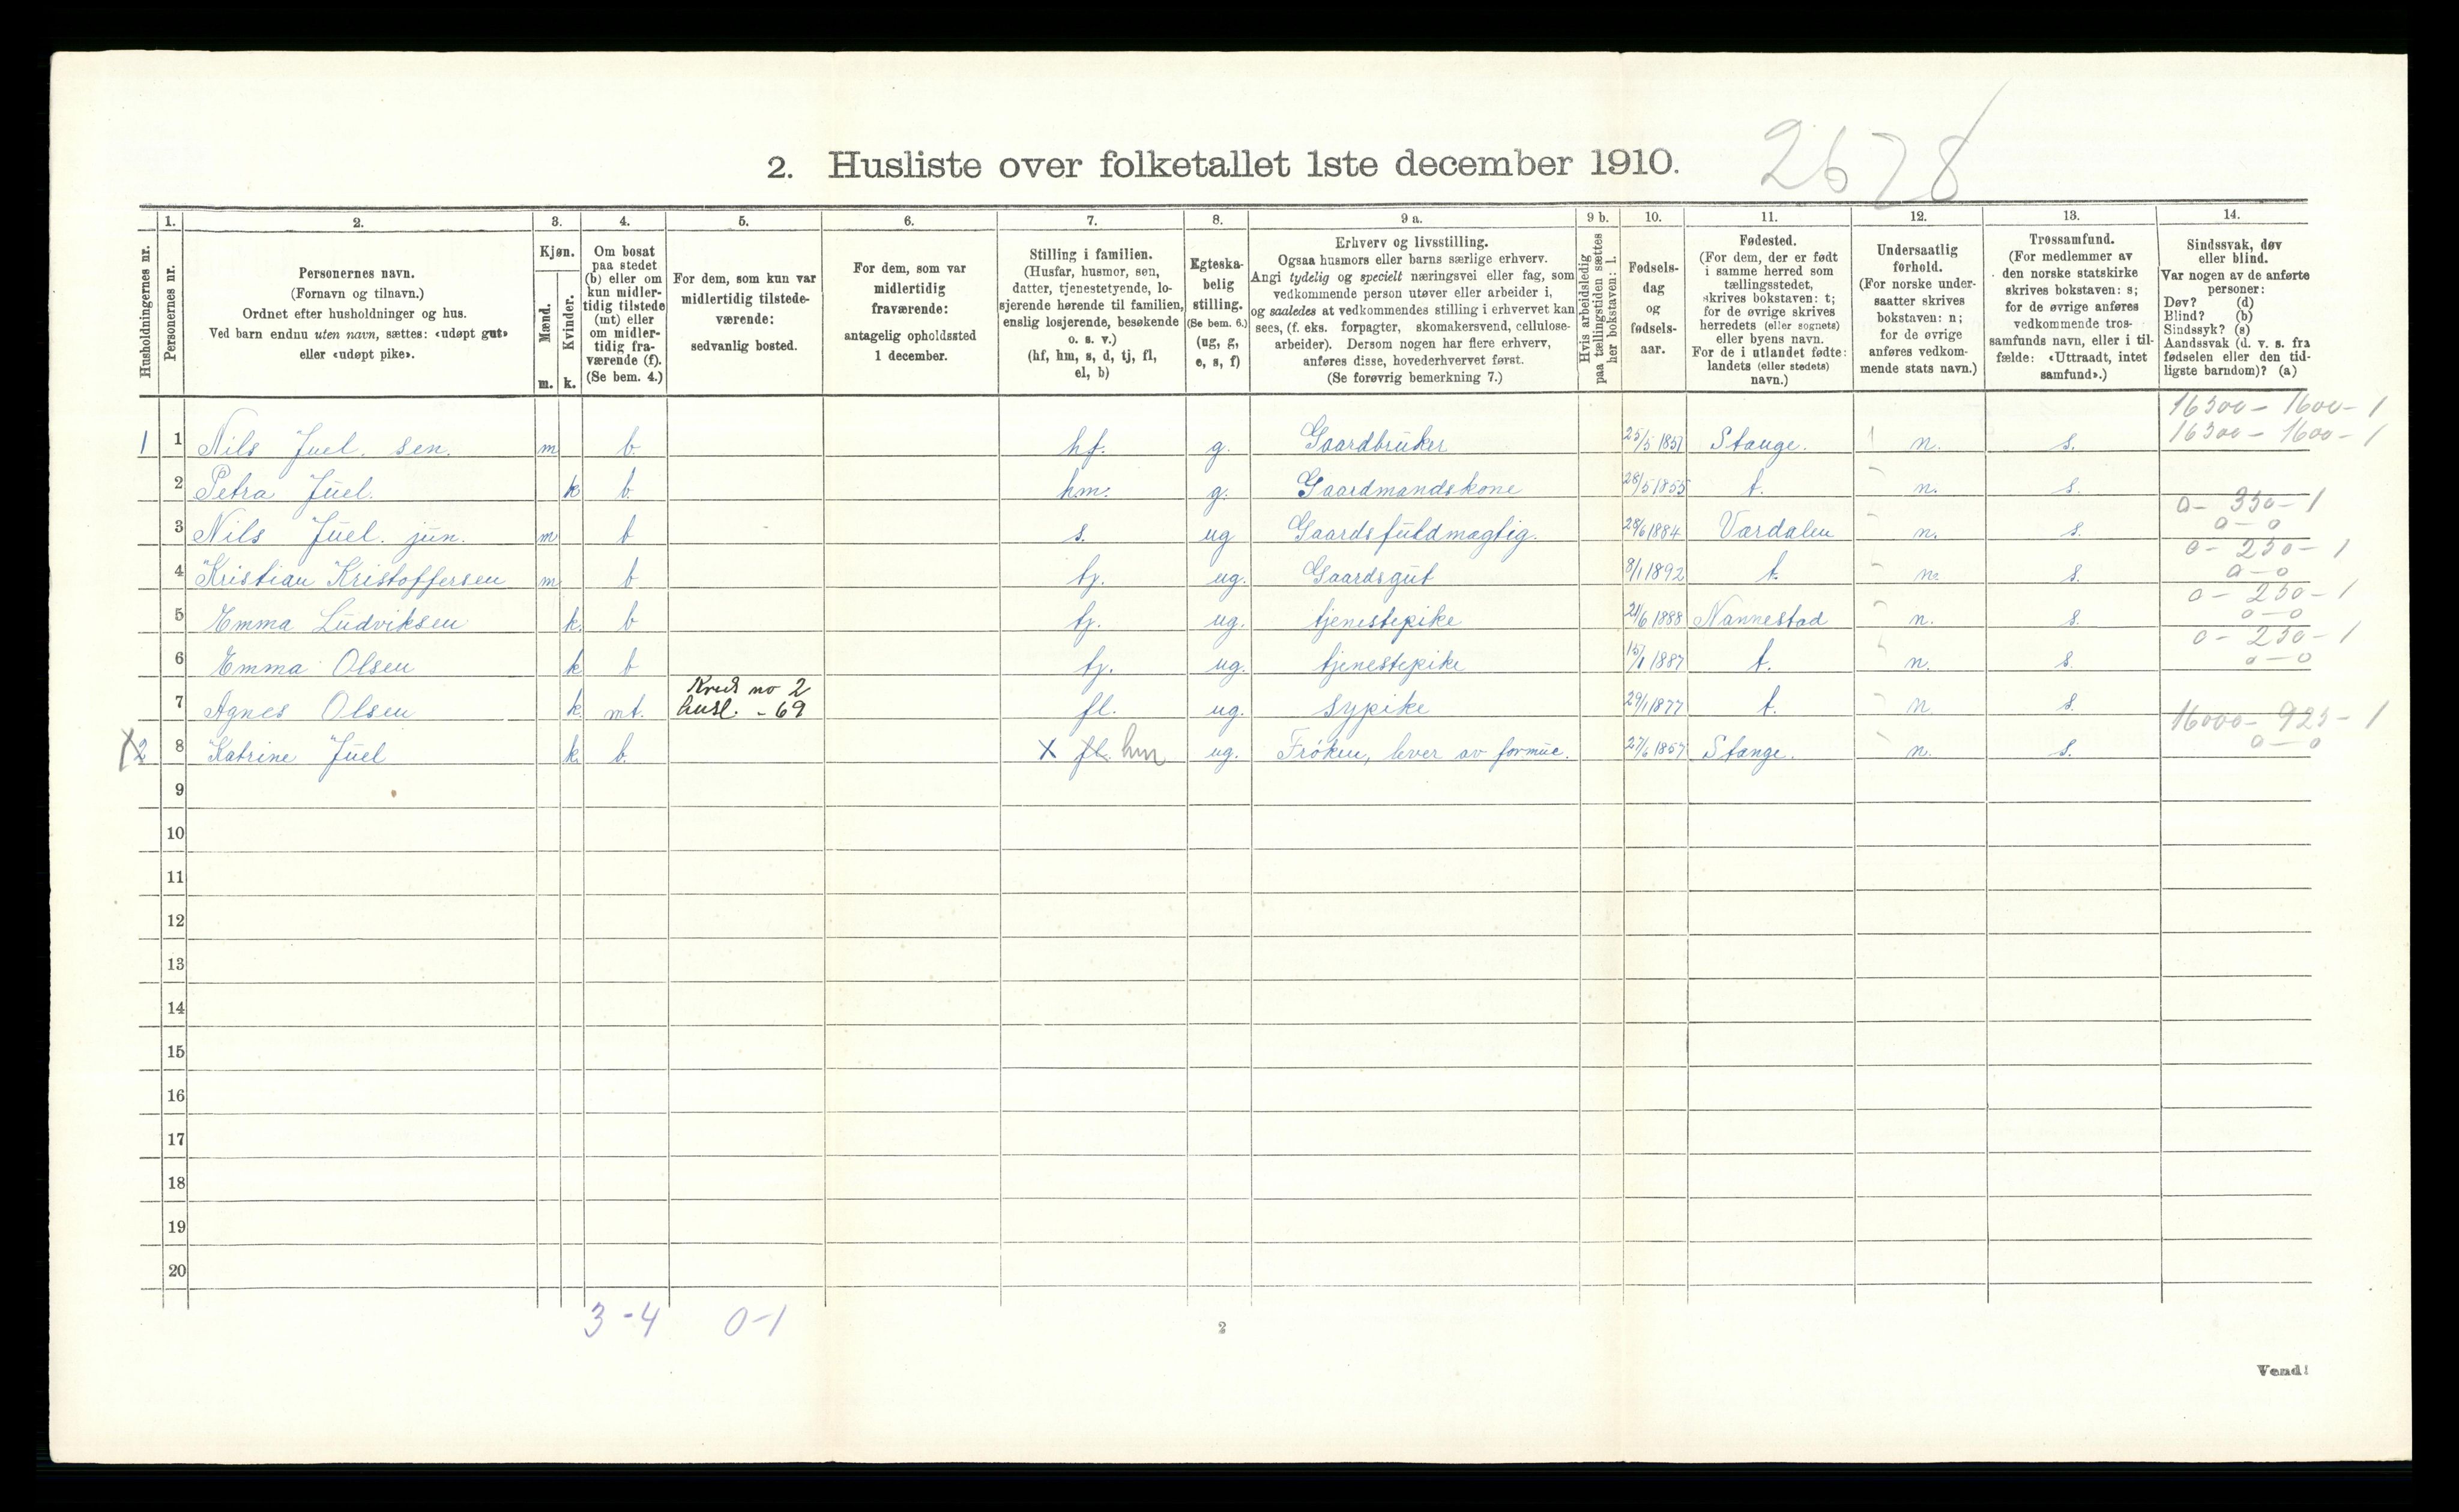 2. Husliste over folketallet 1ste december 1910.
2628
Husholdningernes nr.
1. Personernes nr.
2.
Personernes navn.
(Fornavn og tilnavn.)
Ordnet efter husholdninger og hus.
Ved barn endnu uten navn, sættes: «udøpt gut»
eller «udøpt pike».
3.
Kjøn.
Mænd. m.
Kvinder. k.
4.
Om bosat
paa stedet
(b) eller om
kun midler-
tidig tilstede
(mt) eller
om midler-
tidig fra-
værende (f).
(Se bem. 4.)
5.
For dem, som kun var
midlertidig tilstede-
værende:
sedvanlig bosted.
6.
For dem, som var
midlertidig
fraværende:
antagelig opholdssted
1 december.
7.
Stilling i familien.
(Husfar, husmor, søn,
datter, tjenestetyende, lo-
sjerende hørende til familien,
enslig losjerende, besøkende
o. s. v.)
(hf, hm, s, d, tj, fl,
el, b)
8.
Egteska-
belig
stilling.
(Se bem. 6.)
(ug, g,
e, s, f)
9 a.
Erhverv og livsstilling.
Ogsaa husmors eller barns særlige erhverv.
Angi tydelig og specielt næringsvei eller fag, som
vedkommende person utøver eller arbeider i,
og saaledes at vedkommendes stilling i erhvervet kan
sees, (f. eks. forpagter, skomakersvend, cellulose-
arbeider). Dersom nogen har flere erhverv,
anføres disse, hovederhvervet først.
(Se forøvrig bemerkning 7.)
9 b.
Hvis arbeidsledig
paa tællingstiden sættes
her bokstaven: l.
10.
Fødsels-
dag
og
fødsels-
aar.
11.
Fødested.
(For dem, der er født
i samme herred som
tællingsstedet,
skrives bokstaven: t;
for de øvrige skrives
herredets (eller sognets)
eller byens navn.
For de i utlandet fødte:
landets (eller stedets)
navn.)
12.
Undersaatlig
forhold.
(For norske under-
saatter skrives
bokstaven: n;
for de øvrige
anføres vedkom-
mende stats navn.)
13.
Trossamfund.
(For medlemmer av
den norske statskirke
skrives bokstaven: s;
for de øvrige anføres
vedkommende tros-
samfunds navn, eller i til-
fælde: «Uttraadt, intet
samfund».)
14.
Sindssvak, døv
eller blind.
Var nogen av de anførte
personer:
Døv? (d)
Blind? (b)
Sindssyk? (s)
Aandssvak (d. v. s. fra
fødselen eller den tid-
ligste barndom)? (a)
16300 - 1600 - 1
1 1 Nils Juel. sen. m b. hf. g. Gaardbruker 25/5 1851 Stange. n. s. 16300 - 1600 - 1
2 Petra Juel. k b. hm. g. Gaardmandskone 28/5 1855 t. n. s.
0 - 350 - 1
3 Nils Juel. jun. m b s. ug Gaardsfuldmægtig. 28/6 1884 Værdalen n. s. 0 - 0
0 - 250 - 1
4 Kristian Kristoffersen m b tj. ug. Gaardsgut 8/1 1892 t. n. s. 0 - 0
0 - 250 - 1
5 Emma Ludviksen k. b tj. ug. tjenestepike 21/6 1888 Nannestad n. s. 0 - 0
0 - 250 - 1
6 Emma Olsen k b tj. ug. tjenestepike 15/1 1887 t. n. s. 0 - 0
Kreds no 2
7 Agnes Olsen k. mt. husl. - 69 fl. ug. sypike 29/1 1877 t. n s.
16000 - 925 - 1
X2 8 Katrine Juel k. b. X fl. hm ug. Frøken, lever av formue. 27/6 1857 Stange. n. s. 0 - 0
9
10
11
12
13
14
15
16
17
18
19
20
3 - 4 0 - 1
2
Vend!